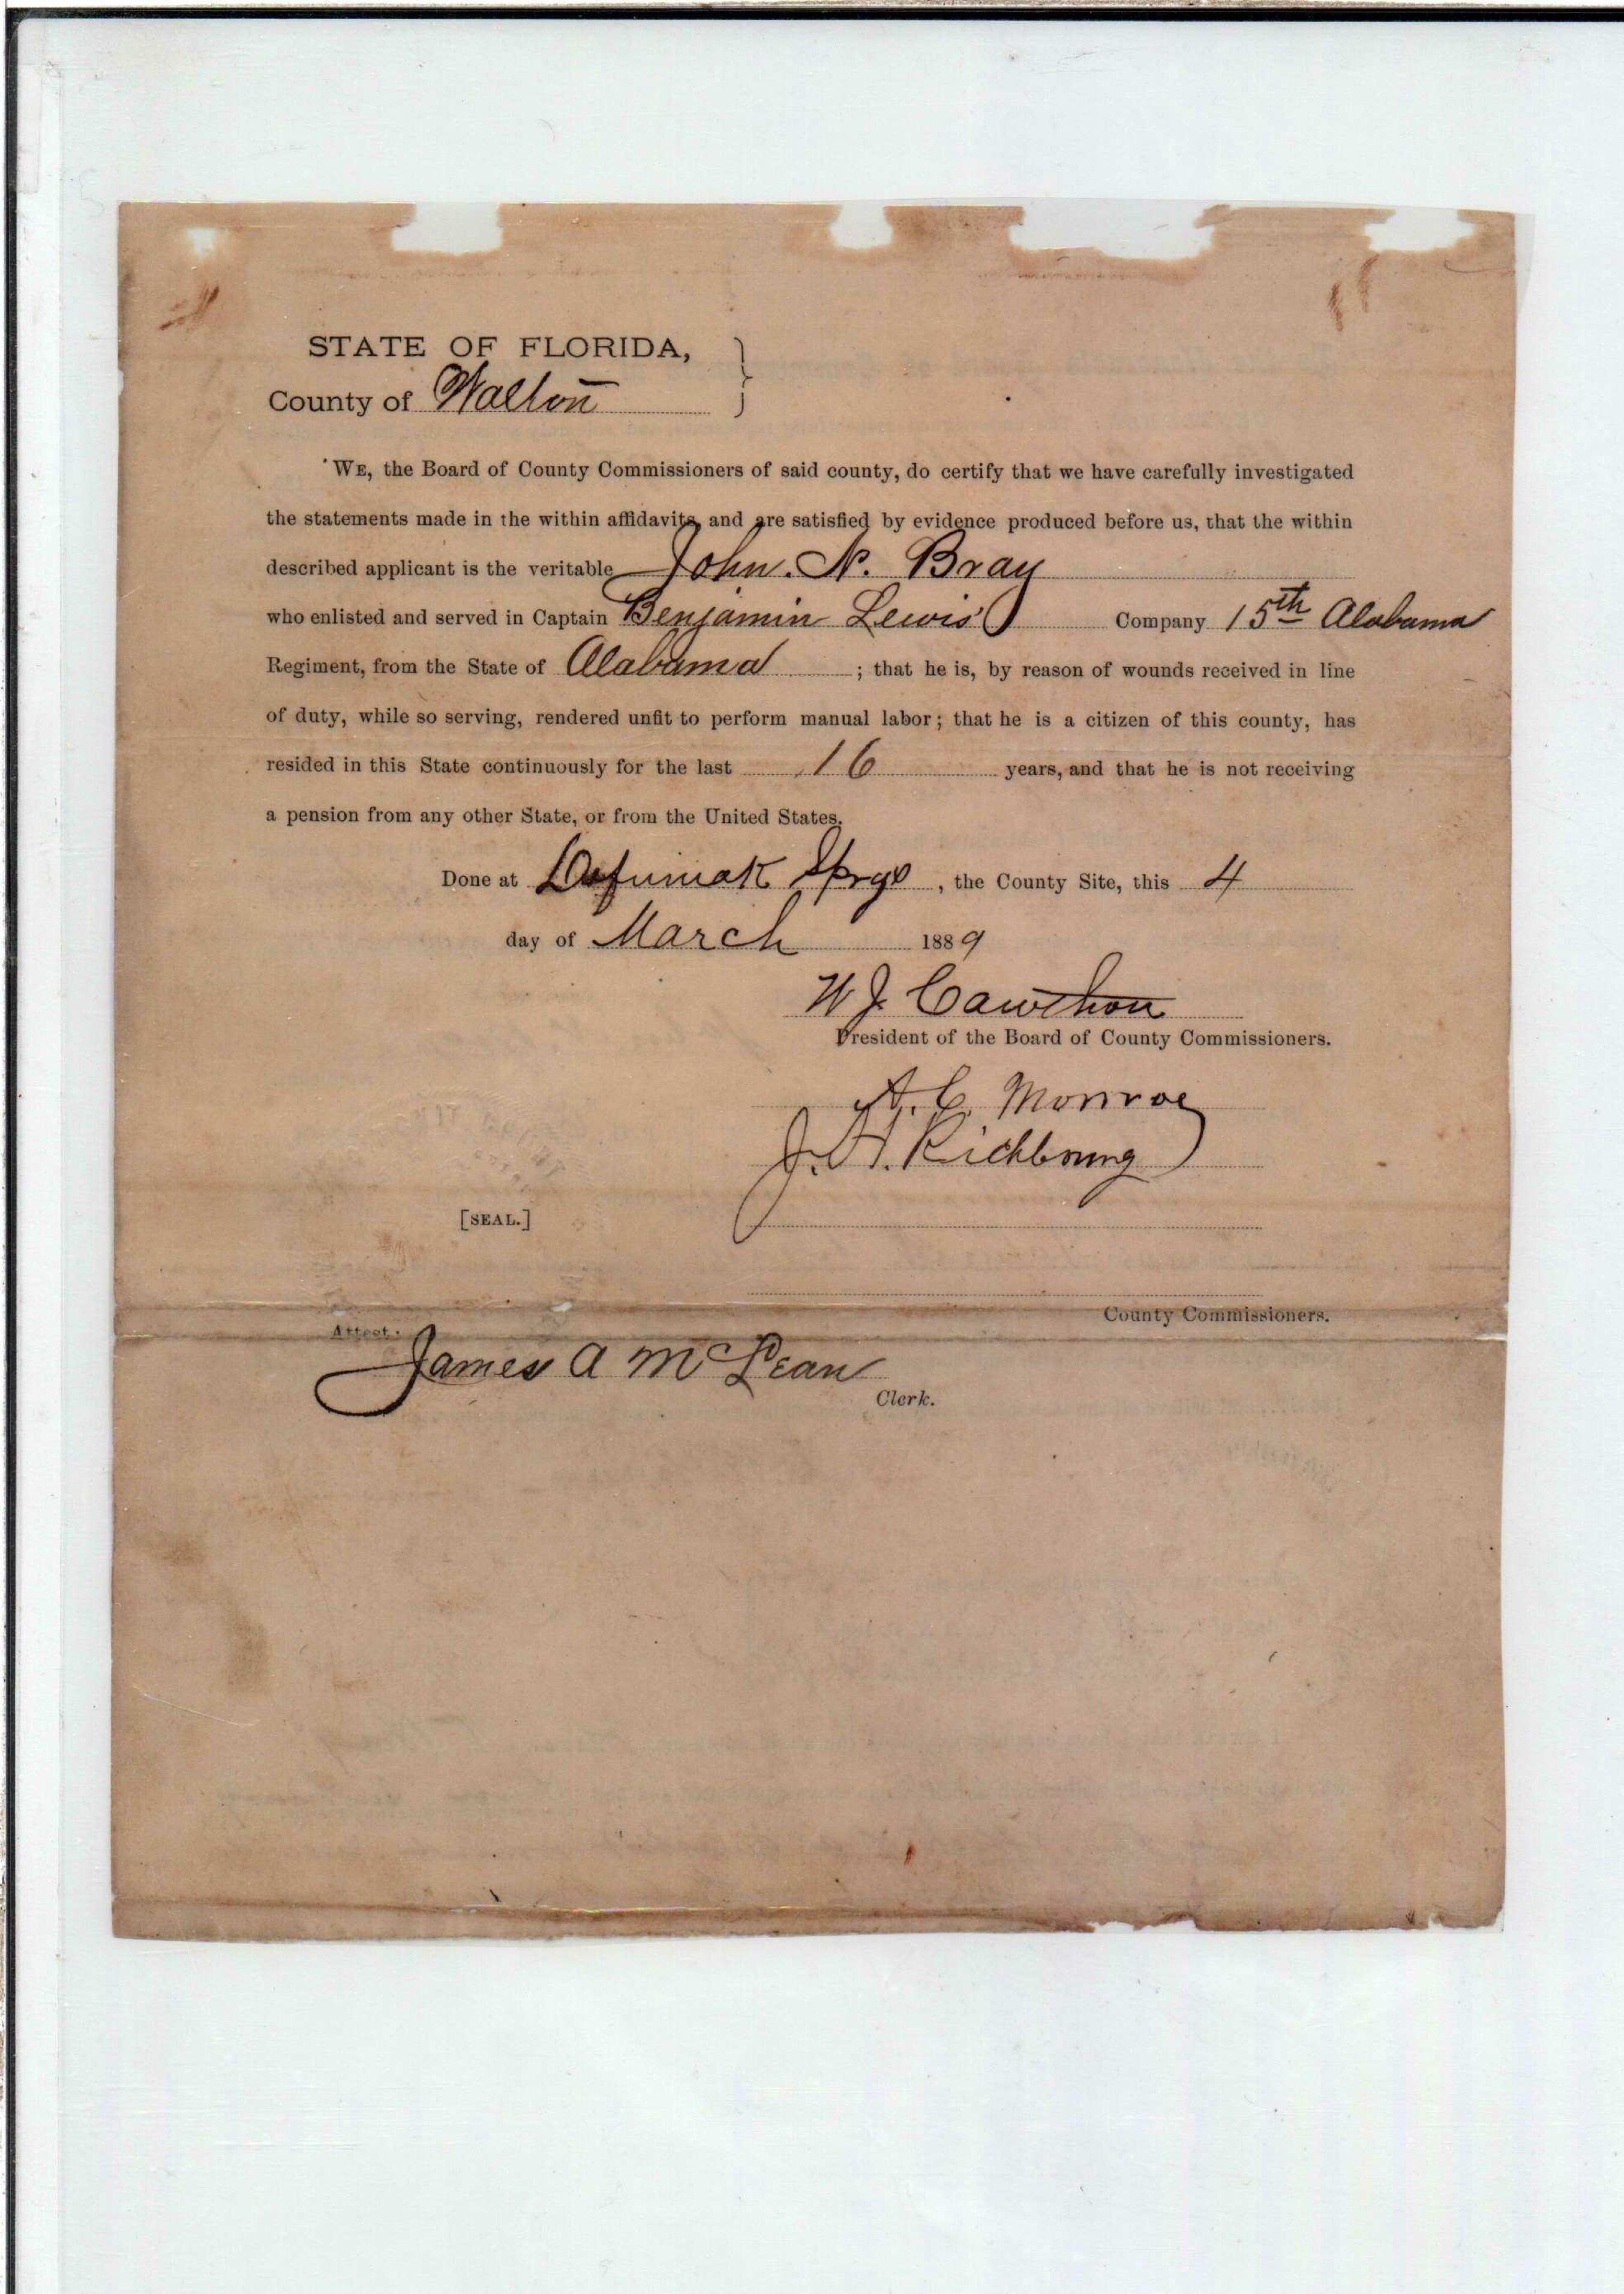 STATE OF FLORIDA,
County of Walton
WE, the Board of County Commissioners of said county, do certify that we have carefully investigated
the statements made in the within affidavits, and are satisfied by evidence produced before us, that the within
described applicant is the veritable John. N. Bray
who enlisted and served in Captain Benjamin Lewis' Company 15th Alabama
Regiment, from the State of Alabama ; that he is, by reason of wounds received in line
of duty, while so serving, rendered unfit to perform manual labor; that he is a citizen of this county, has
resided in this State continuously for the last 16 years, and that he is not receiving
a pension from any other State, or from the United States.
Done at Defuniak Sprgs, the County Site, this 4
day of March 1889
W J Cawthon
President of the Board of County Commissioners.
A. C. Monroe
J. H. Richbourg
[SEAL.]
County Commissioners.
Attest:
James A McLean
Clerk.